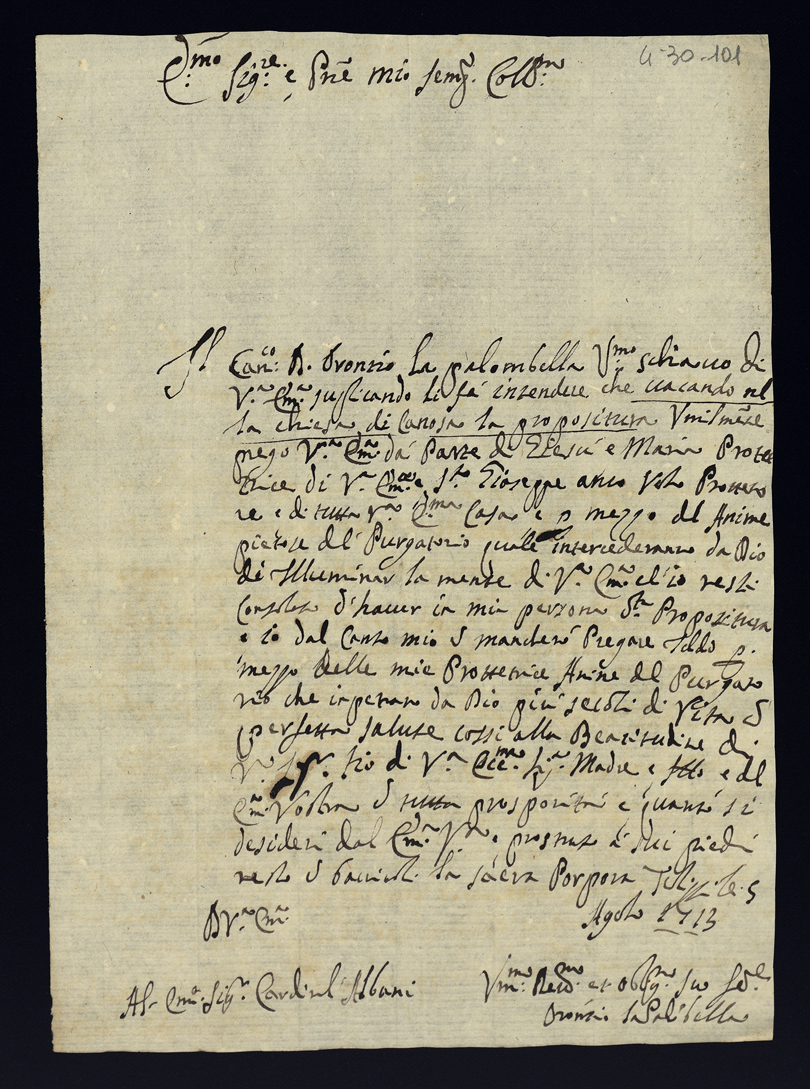 4-30-101
E.mo Sig.re e Prne mio semp. Coll.mo
Il Can.co D. Oronzio la palombella V.mo schiavo di
V.a Em.a supplicando li fà intendere che vacando nel
la chiesa di Canosa la propositura Vmilmente
prego V.a Em.a da parte di Giesù e Maria Protet
trice di V.a Em.a e S.to Gioseppe anco Protetto
re e di tutta V.a E.ma Casa e p mezzo del Anime
pietose del Purgatorio quale intercederanno da Dio
de Illuminar la mente di V.a Em.a ch'io resti
consolato d'haver in mia persona d.ta Propositura
e io dal canto mio mancherò Pregare Iddio p.
mezzo delle mie Protettrice Anime del Purgato
rio che imperano da Dio più secoli di Vita
perfetta salute cossì alla Beatitudine di
V. Sig.r tio di V.a Madre e e del
Em. Vostra tutta prosperità e quanto si
desideri dal Em.a V.a e prostrato à suoi piedi
resto la sacra Porpora li 5
Agosto 1713
D V.a Em.a
Al Em.o Sig.r Cardinal Albani
Vm.mo et oblig.mo
Oronzio